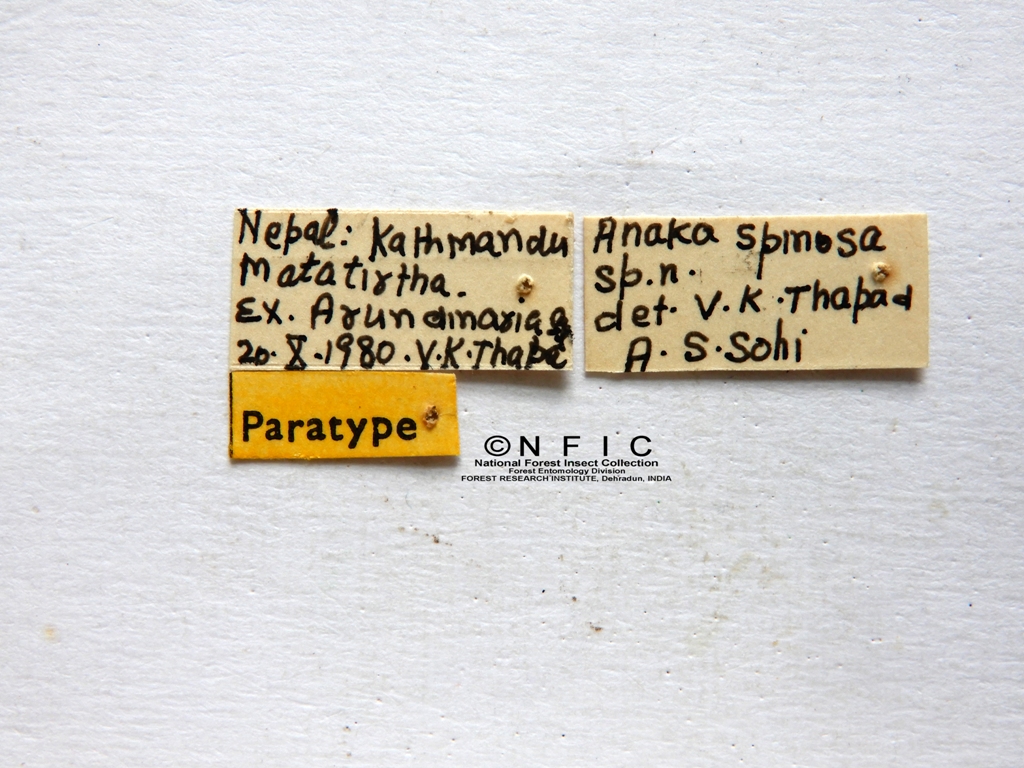 Nepal: Kathmandu
Matatirtha.
Ex. Arundinaria
20.X.1980.V.K.Thapa
Paratype
Anaka spinosa
sp.n.
det. V.K.Thapa &
A.S.Sohi
© N F I C
National Forest Insect Collection
Forest Entomology Division
FOREST RESEARCH INSTITUTE, Dehradun, INDIA